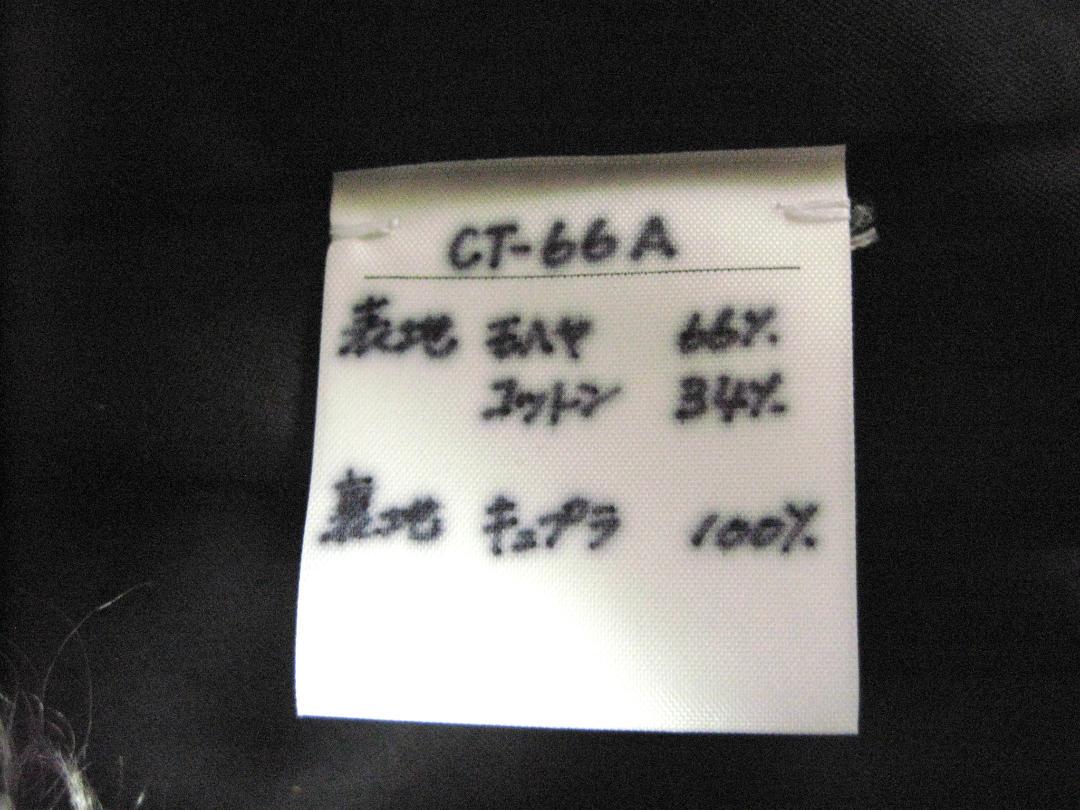 CT-66A
表地 モヘヤ 66%
コットン 34%
裏地 キュプラ 100%